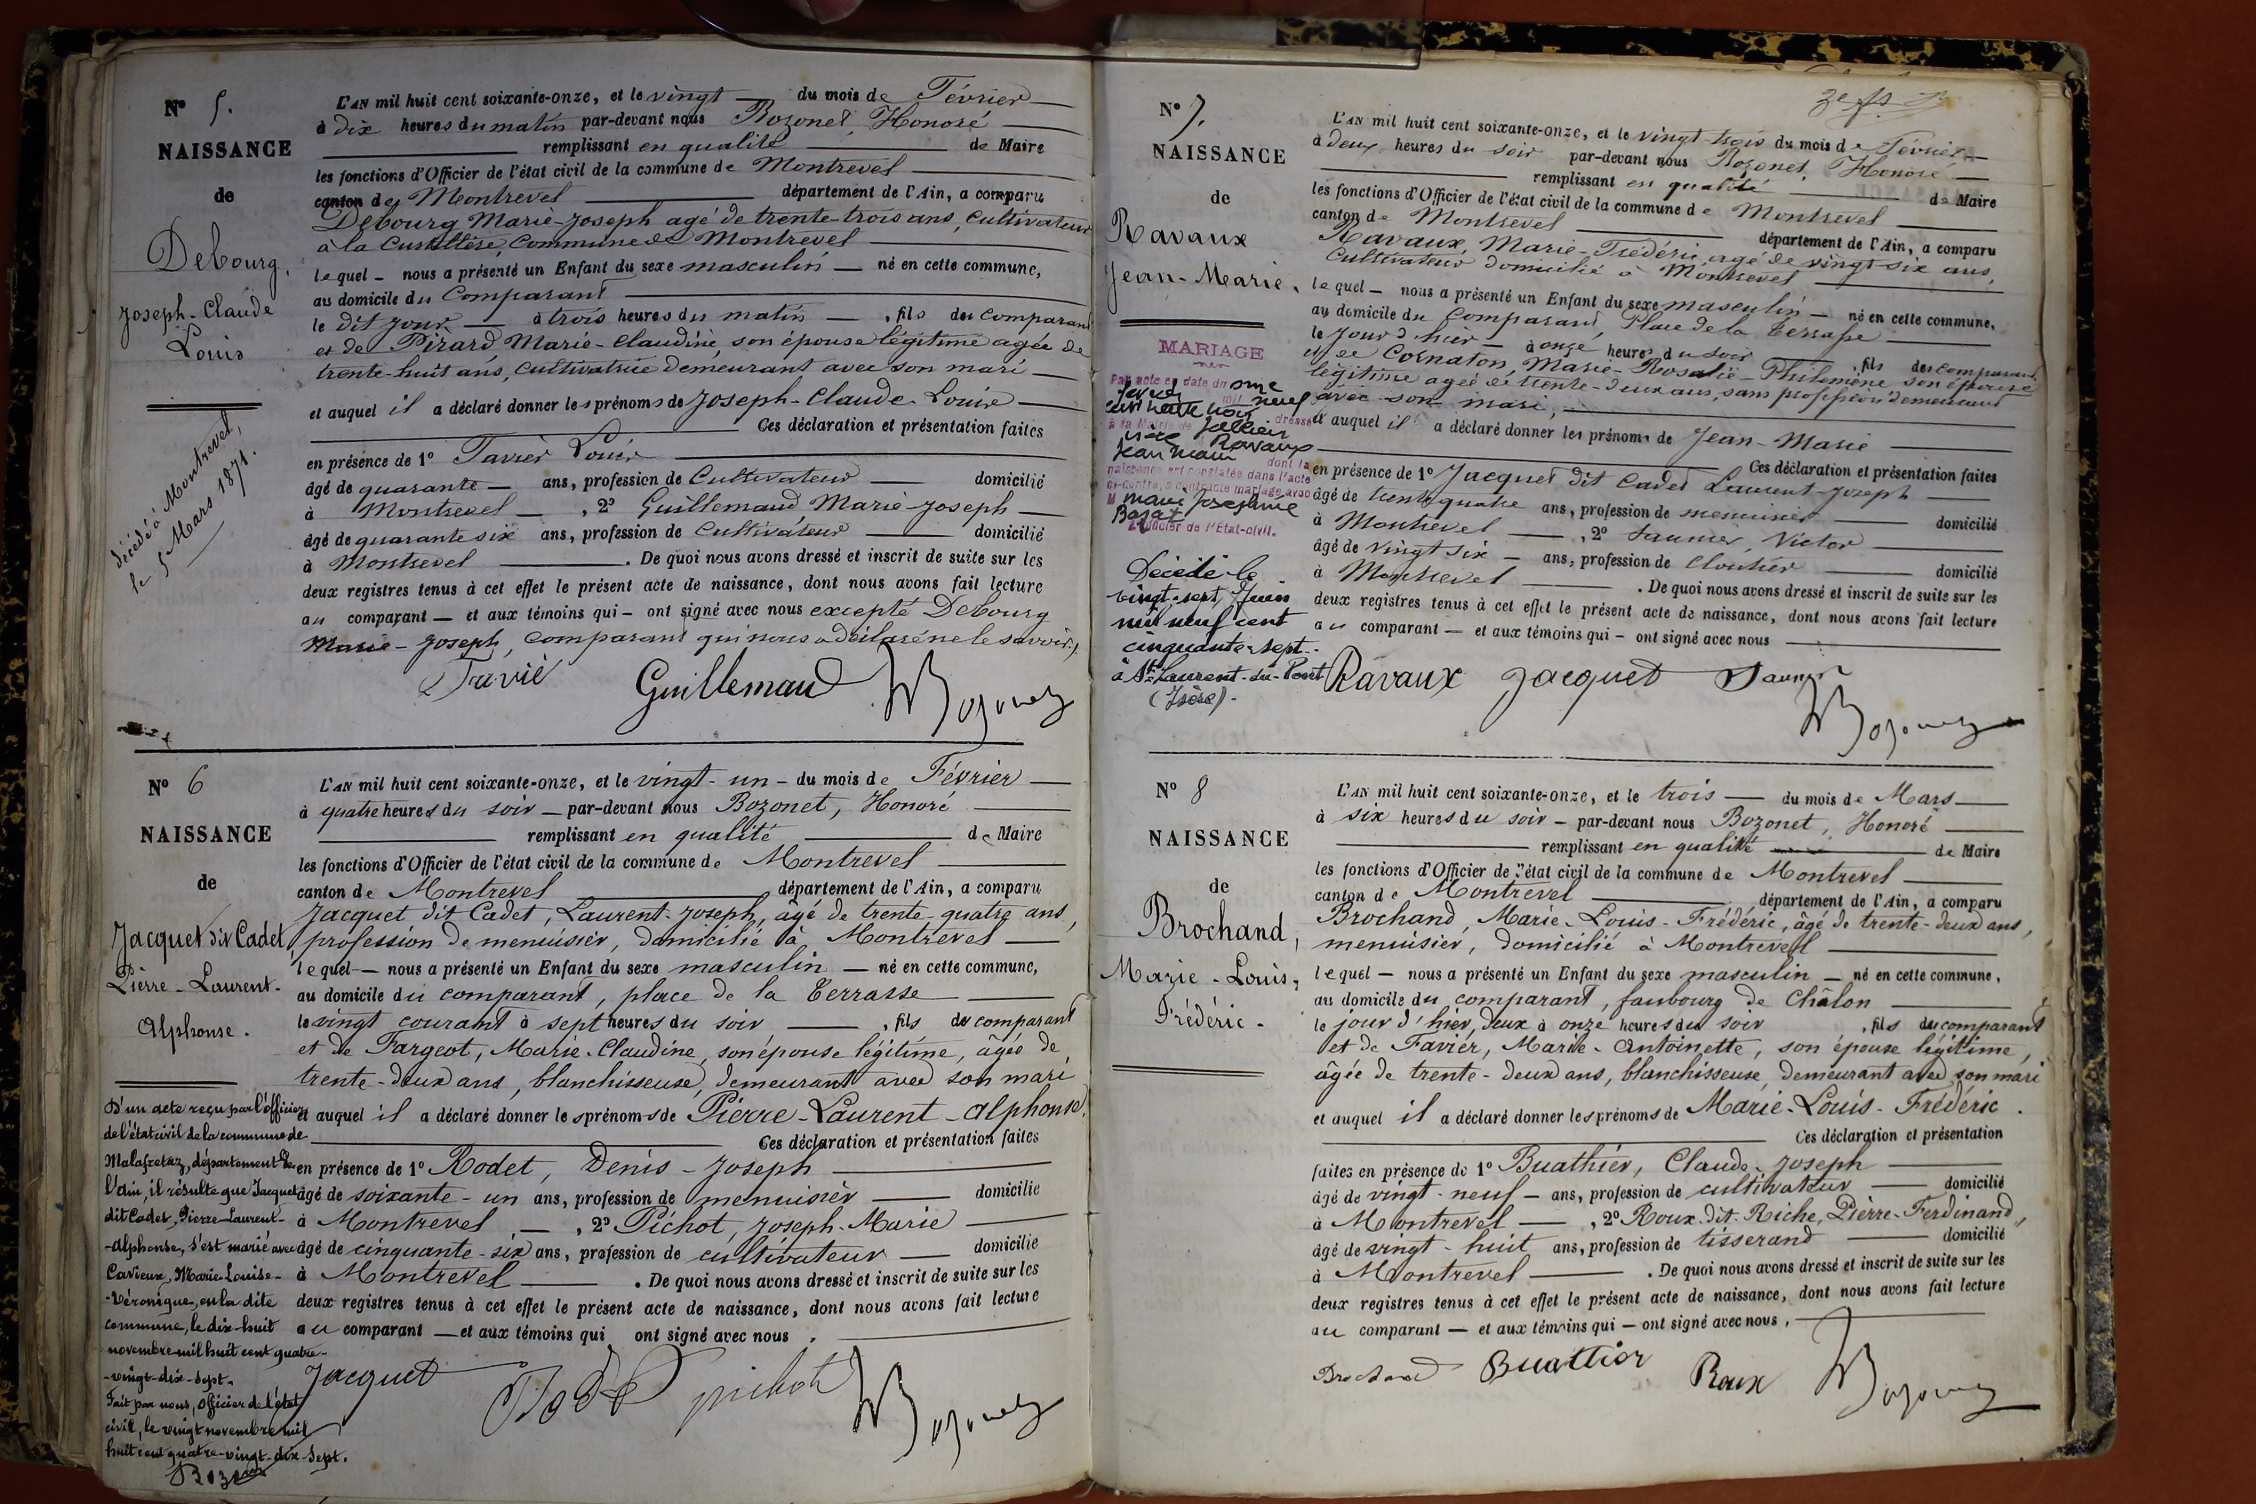 N° 5.
NAISSANCE
de
Debourg,
Joseph-Claude
Louis
décédé à Montrevel,
le 5 Mars 1871.
L'AN mil huit cent soixante-onze, et le vingt du mois de Février
à dix heures du matin par-devant nous Bozonet, Honoré
remplissant en qualité de Maire
les fonctions d'Officier de l'état civil de la commune de Montrevel
canton de Montrevel département de l'Ain, a comparu
Debourg Marie-Joseph agé de trente-trois ans, Cultivateur
à la Commune de Montrevel
lequel nous a présenté un Enfant du sexe masculin né en cette commune,
au domicile du Comparant
le dit jour à trois heures du matin, fils du comparant
et de Pirard Marie-Claudine, son épouse légitime agée de
trente-huit ans, Cultivatrice demeurant avec son mari
et auquel il a déclaré donner les prénoms de Joseph-Claude-Louis
Ces déclaration et présentation faites
en présence de 1° Favier Louis
âgé de quarante ans, profession de Cultivateur domicilié
à Montrevel, 2° Guillemaud, Marie-Joseph
âgé de quarante six ans, profession de Cultivateur domicilié
à Montrevel. De quoi nous avons dressé et inscrit de suite sur les
deux registres tenus à cet effet le présent acte de naissance, dont nous avons fait lecture
au comparant et aux témoins qui ont signé avec nous excepté Debourg
Marie-Joseph, comparant qui nous a déclaré ne le savoir.
Favié Guillemaud Bozonet
N° 6
NAISSANCE
de
Jacquet dit Cadet,
Pierre-Laurent-
Alphonse.
D'un acte reçu par l'officier
de l'état civil de la commune de
Malafretaz, département de
l'Ain, il résulte que Jacquet
dit Cadet, Pierre-Laurent-
-Alphonse, s'est marié avec
Cavieux, Marie-Louise-
-Véronique, en la dite
commune, le dix-huit
novembre mil huit cent quatre-
-vingt-dix-sept.
Fait par nous, officier de l'état
civil, le vingt novembre mil
huit cent quatre-vingt-dix-sept.
L'AN mil huit cent soixante-onze, et le vingt-un du mois de Février
à quatre heures du soir par-devant nous Bozonet, Honoré
remplissant en qualité de Maire
les fonctions d'Officier de l'état civil de la commune de Montrevel
canton de Montrevel département de l'Ain, a comparu
Jacquet dit Cadet, Laurent-Joseph, âgé de trente-quatre ans,
profession de menuisier, domicilié à Montrevel
lequel nous a présenté un Enfant du sexe masculin né en cette commune,
au domicile du comparant, place de la Terrasse
le vingt courant à sept heures du soir, fils du comparant
et de Fargeot, Marie-Claudine, son épouse légitime, âgée de
trente-deux ans, blanchisseuse, demeurant avec son mari
et auquel il a déclaré donner les prénoms de Pierre-Laurent-Alphonse.
Ces déclaration et présentation faites
en présence de 1° Rodet, Denis-Joseph
âgé de soixante-un ans, profession de menuisier domicilié
à Montrevel, 2° Pichot, Joseph-Marie
âgé de cinquante-six ans, profession de cultivateur domicilié
à Montrevel. De quoi nous avons dressé et inscrit de suite sur les
deux registres tenus à cet effet le présent acte de naissance, dont nous avons fait lecture
au comparant et aux témoins qui ont signé avec nous.
Jacquet Rodet pichot Bozonet
N° 7.
NAISSANCE
de
Ravaux
Jean-Marie.
MARIAGE
Par acte en date du onze
neuf
cent trente trois
dressé
à la Mairie de
Ravaux
Jean Marie dont la
naissance est constatée dans l'acte
ci-contre, a contracté mariage avec
M Marie Josephine
L'Officier de l'Etat-civil.
Décédé le
vingt-sept Juin
mil neuf cent
cinquante-sept
à St-Laurent-du-Pont
(Isère).
L'AN mil huit cent soixante-onze, et le vingt trois du mois de Février
à deux heures du soir par-devant nous Bozonet, Honoré
remplissant en qualité de Maire
les fonctions d'Officier de l'état civil de la commune de Montrevel
canton de Montrevel département de l'Ain, a comparu
Ravaux, Marie-Frédéric, agé de vingt six ans,
Cultivateur domicilié à Montrevel
lequel nous a présenté un Enfant du sexe masculin né en cette commune,
au domicile du Comparant, Place de la Terrasse
le jour d'hier à onze heures du soir, fils du comparant
et de Cornaton, Marie-Rosalie-Philomène son épouse
légitime agée de trente-deux ans, sans profession demeurant
avec son mari,
et auquel il a déclaré donner les prénoms de Jean-Marie
Ces déclaration et présentation faites
en présence de 1° Jacquet dit Cadet Laurent-Joseph
âgé de trente quatre ans, profession de menuisier domicilié
à Montrevel, 2° Saunier, Victor
âgé de vingt six ans, profession de cloutier domicilié
à Montrevel. De quoi nous avons dressé et inscrit de suite sur les
deux registres tenus à cet effet le présent acte de naissance, dont nous avons fait lecture
au comparant et aux témoins qui ont signé avec nous
Ravaux Jacquet Saunier
Bozonet
N° 8
NAISSANCE
de
Brochand,
Marie-Louis,
Frédéric.
L'AN mil huit cent soixante-onze, et le trois du mois de Mars
à six heures du soir par-devant nous Bozonet, Honoré
remplissant en qualité de Maire
les fonctions d'Officier de l'état civil de la commune de Montrevel
canton de Montrevel département de l'Ain, a comparu
Brochand, Marie-Louis-Frédéric, âgé de trente-deux ans,
menuisier, domicilié à Montrevel
lequel nous a présenté un Enfant du sexe masculin né en cette commune,
au domicile du comparant, faubourg de Châlon
le jour d'hier, deux à onze heures du soir, fils du comparant
et de Favier, Marie-Antoinette, son épouse légitime,
âgée de trente-deux ans, blanchisseuse, demeurant avec son mari
et auquel il a déclaré donner les prénoms de Marie-Louis-Frédéric.
Ces déclaration et présentation
faites en présence de 1° Buathier, Claude-Joseph
âgé de vingt-neuf ans, profession de cultivateur domicilié
à Montrevel, 2° Roux-dit-Riche, Pierre-Ferdinand,
âgé de vingt-huit ans, profession de tisserand domicilié
à Montrevel. De quoi nous avons dressé et inscrit de suite sur les
deux registres tenus à cet effet le présent acte de naissance, dont nous avons fait lecture
au comparant et aux témoins qui ont signé avec nous.
Brochand Buattier Roux Bozonet